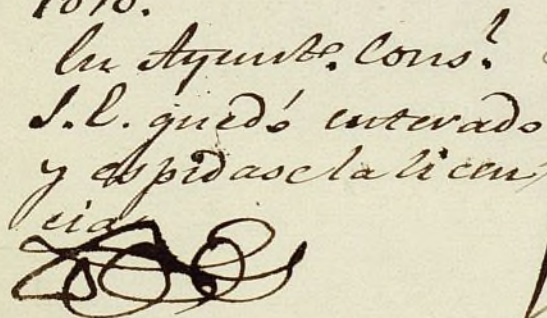 En Ayunto. Cons.l
S.E. quedó enterado
y espidase la licen
cia